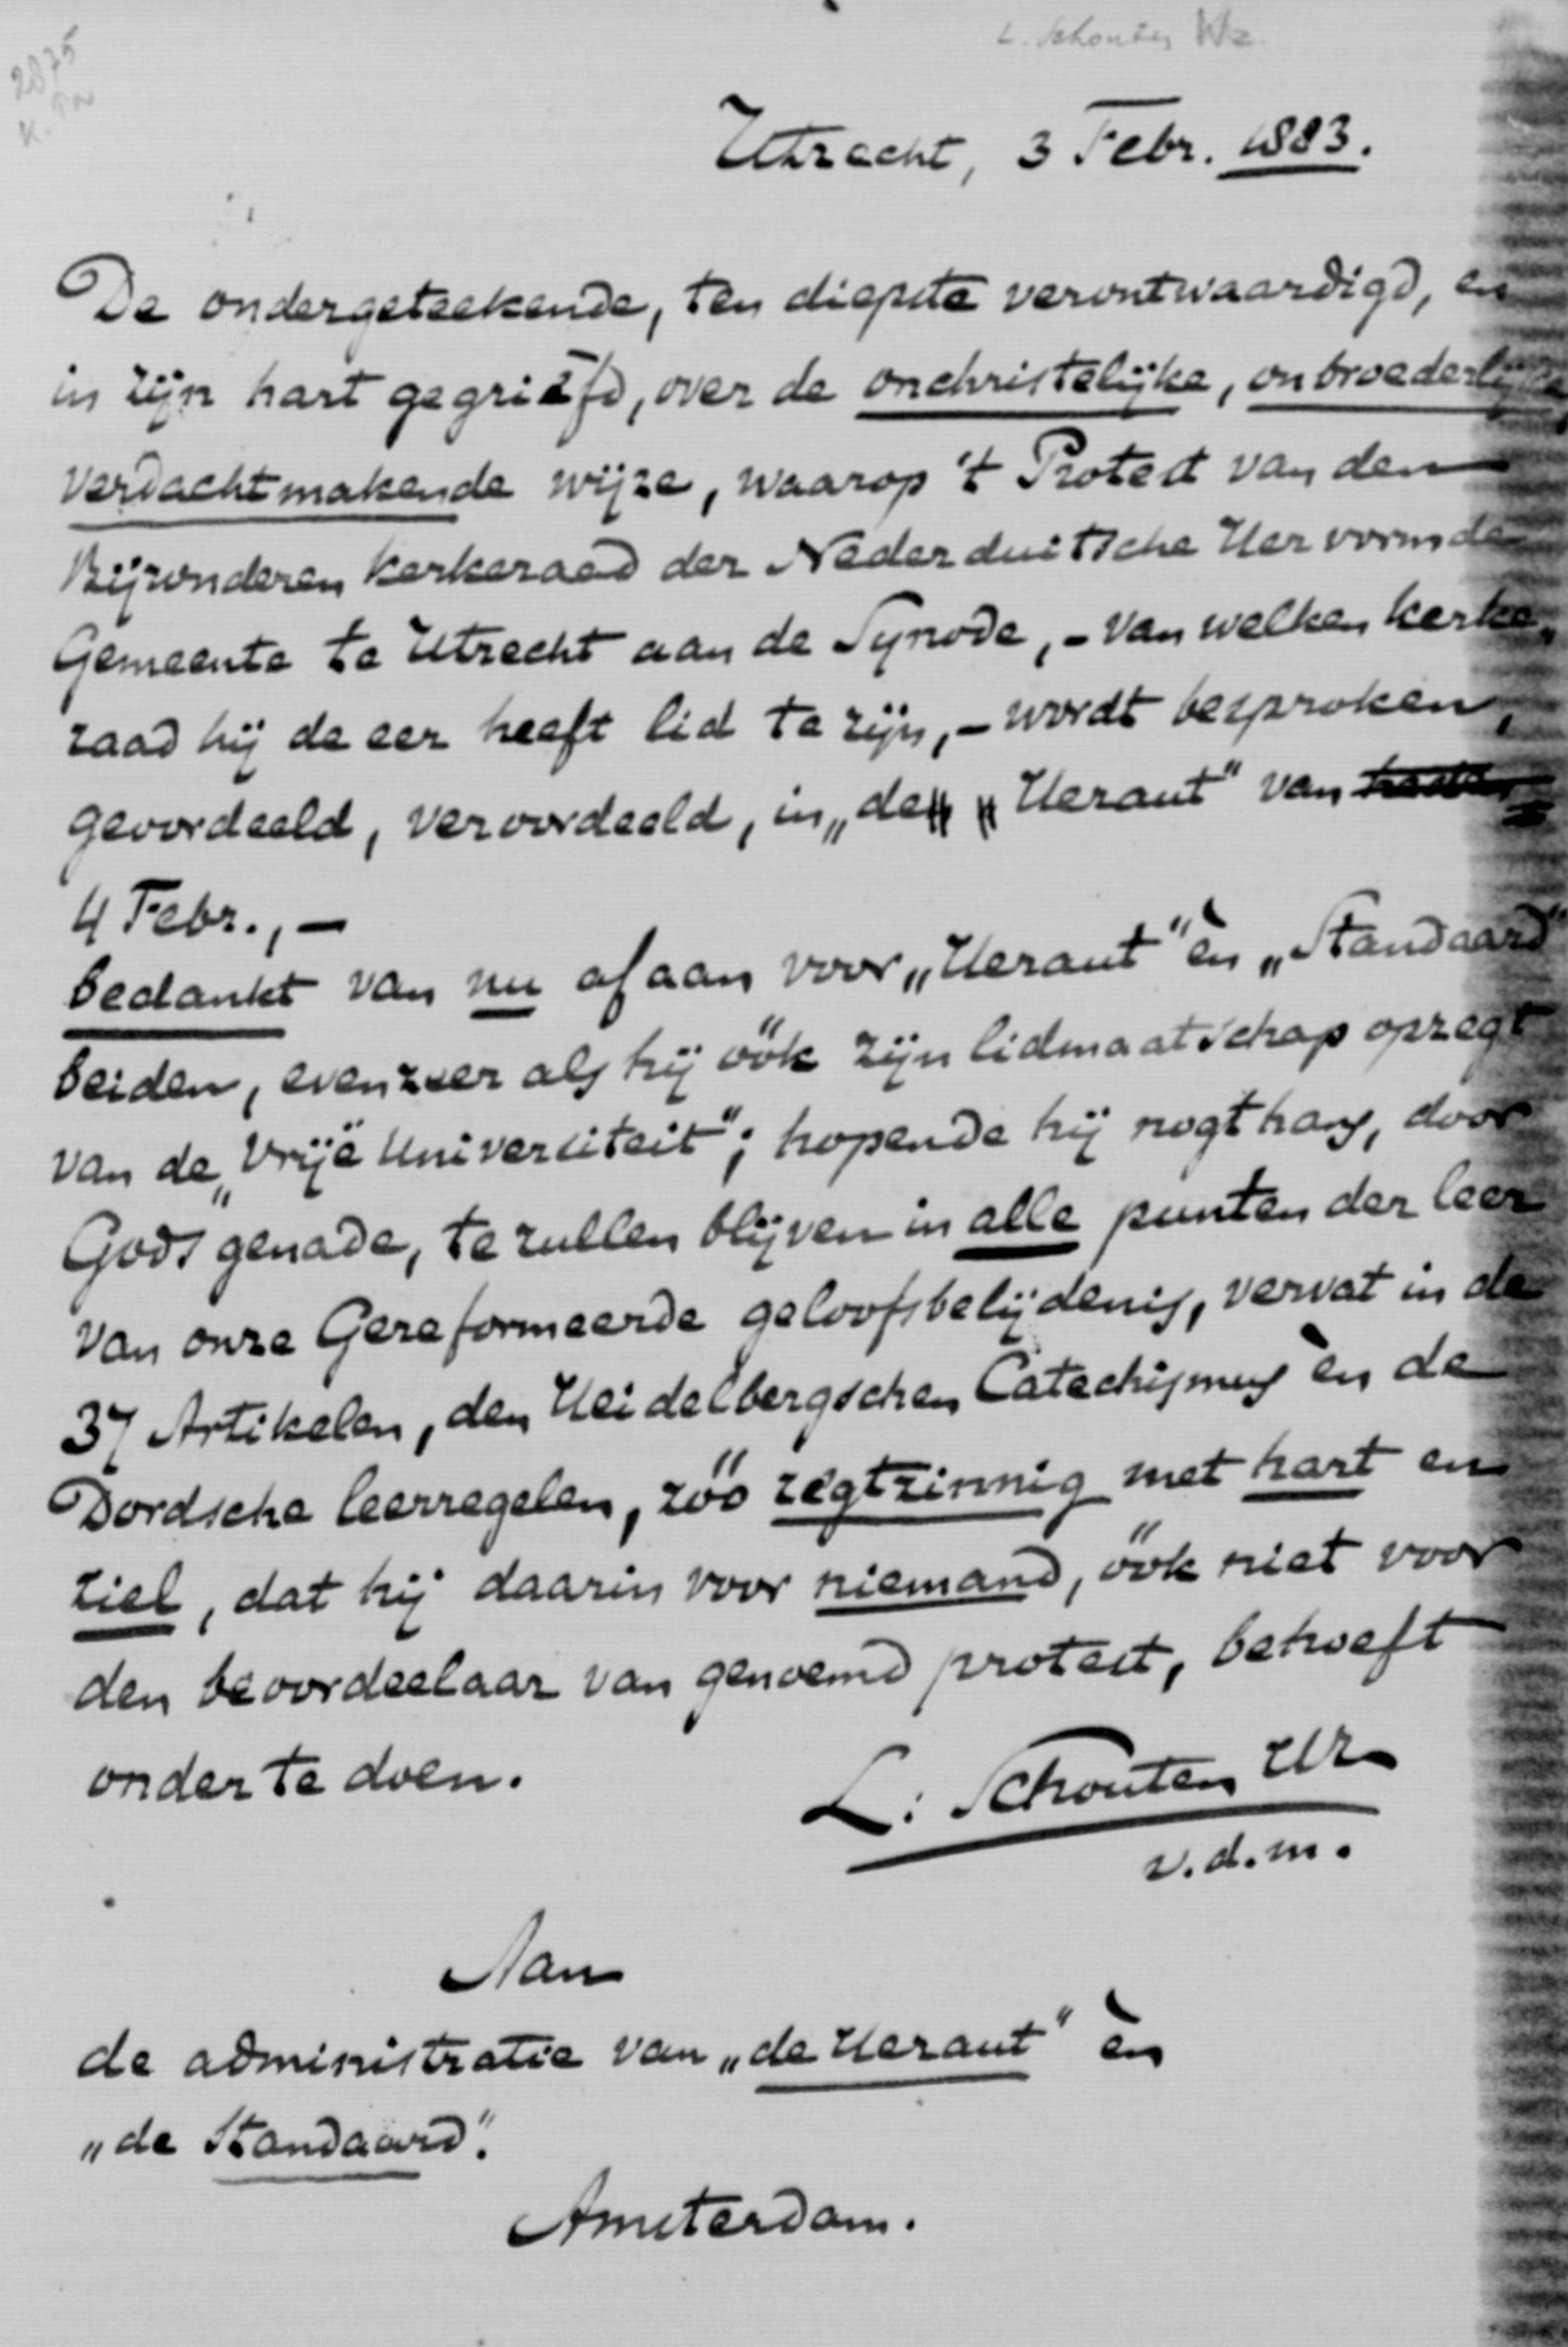 L. Schouten Hz.
2875
Utrecht, 3 Febr. 1883.
De ondergeteekende, ten diepste verontwaardigd, en
in zijn hart gegriefd, over de onchristelijke, onbroederlijke
verdachtmakende wijze, waarop 't Protest van den
Bijzonderen kerkeraad der Nederduitsche Hervormde
Gemeente te Utrecht aan de Synode, - van welken kerke„
raad hij de eer heeft lid te zijn, - wordt besproken,
geoordeeld, veroordeeld, in „de „Heraut" van
4 Febr., -
bedankt van nu af aan voor „Heraut" èn „Standaard"
beiden, evenzeer als hij óók zijn lidmaatschap opzegt
van de „Vrije Universiteit"; hopende hij nogthans, door
Gods genade, te zullen blijven in alle punten der leer
van onze Gereformeerde geloofsbelijdenis, vervat in de
37 Artikelen, den Heidelbergschen Catechismus èn de
Dordsche leerregelen, zóó regtzinnig met hart en
ziel, dat hij daarin voor niemand, óók niet voor
den beoordeelaar van genoemd protest, behoeft
onder te doen.
L: Schouten Hz
v.d.m.
Aan
de administratie van „de Heraut" èn
„de Standaard".
Amsterdam.